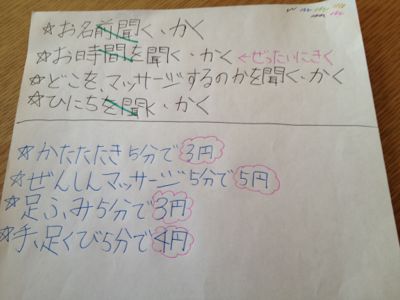 ☆お名前聞く、かく
☆お時間を聞く、かく ←ぜったいにきく
☆どこを、マッサージするのかを聞く、かく
☆ひにちを聞く、かく
☆かたたたき5分で3円
☆ぜんしんマッサージ5分で5円
☆足ふみ5分で3円
☆手、足くび5分で4円